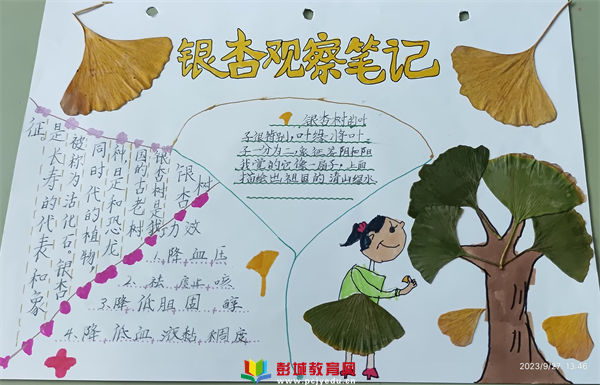 银杏观察笔记
银杏树的叶
子很特别,叶缘将叶
子一分为二,象征着阴和阳
我觉的它像一扇子,上面
描绘出祖国的清山绿水
银杏树是我
国的古老树
种日是和恐龙
同时代的植物,
被称为活化石 银杏
是长寿的代表和象
征。
银杏树
功效
1.降血压
2.祛痰止咳
3.降低胆固醇
4.降低血液黏稠度
2023/9/27 13:46
彭城教育网